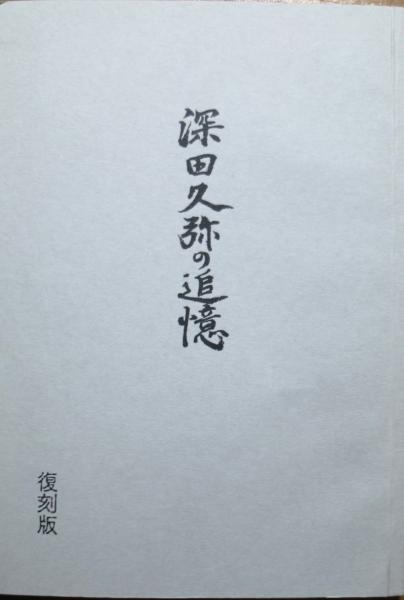 深田久弥の追憶
復刻版